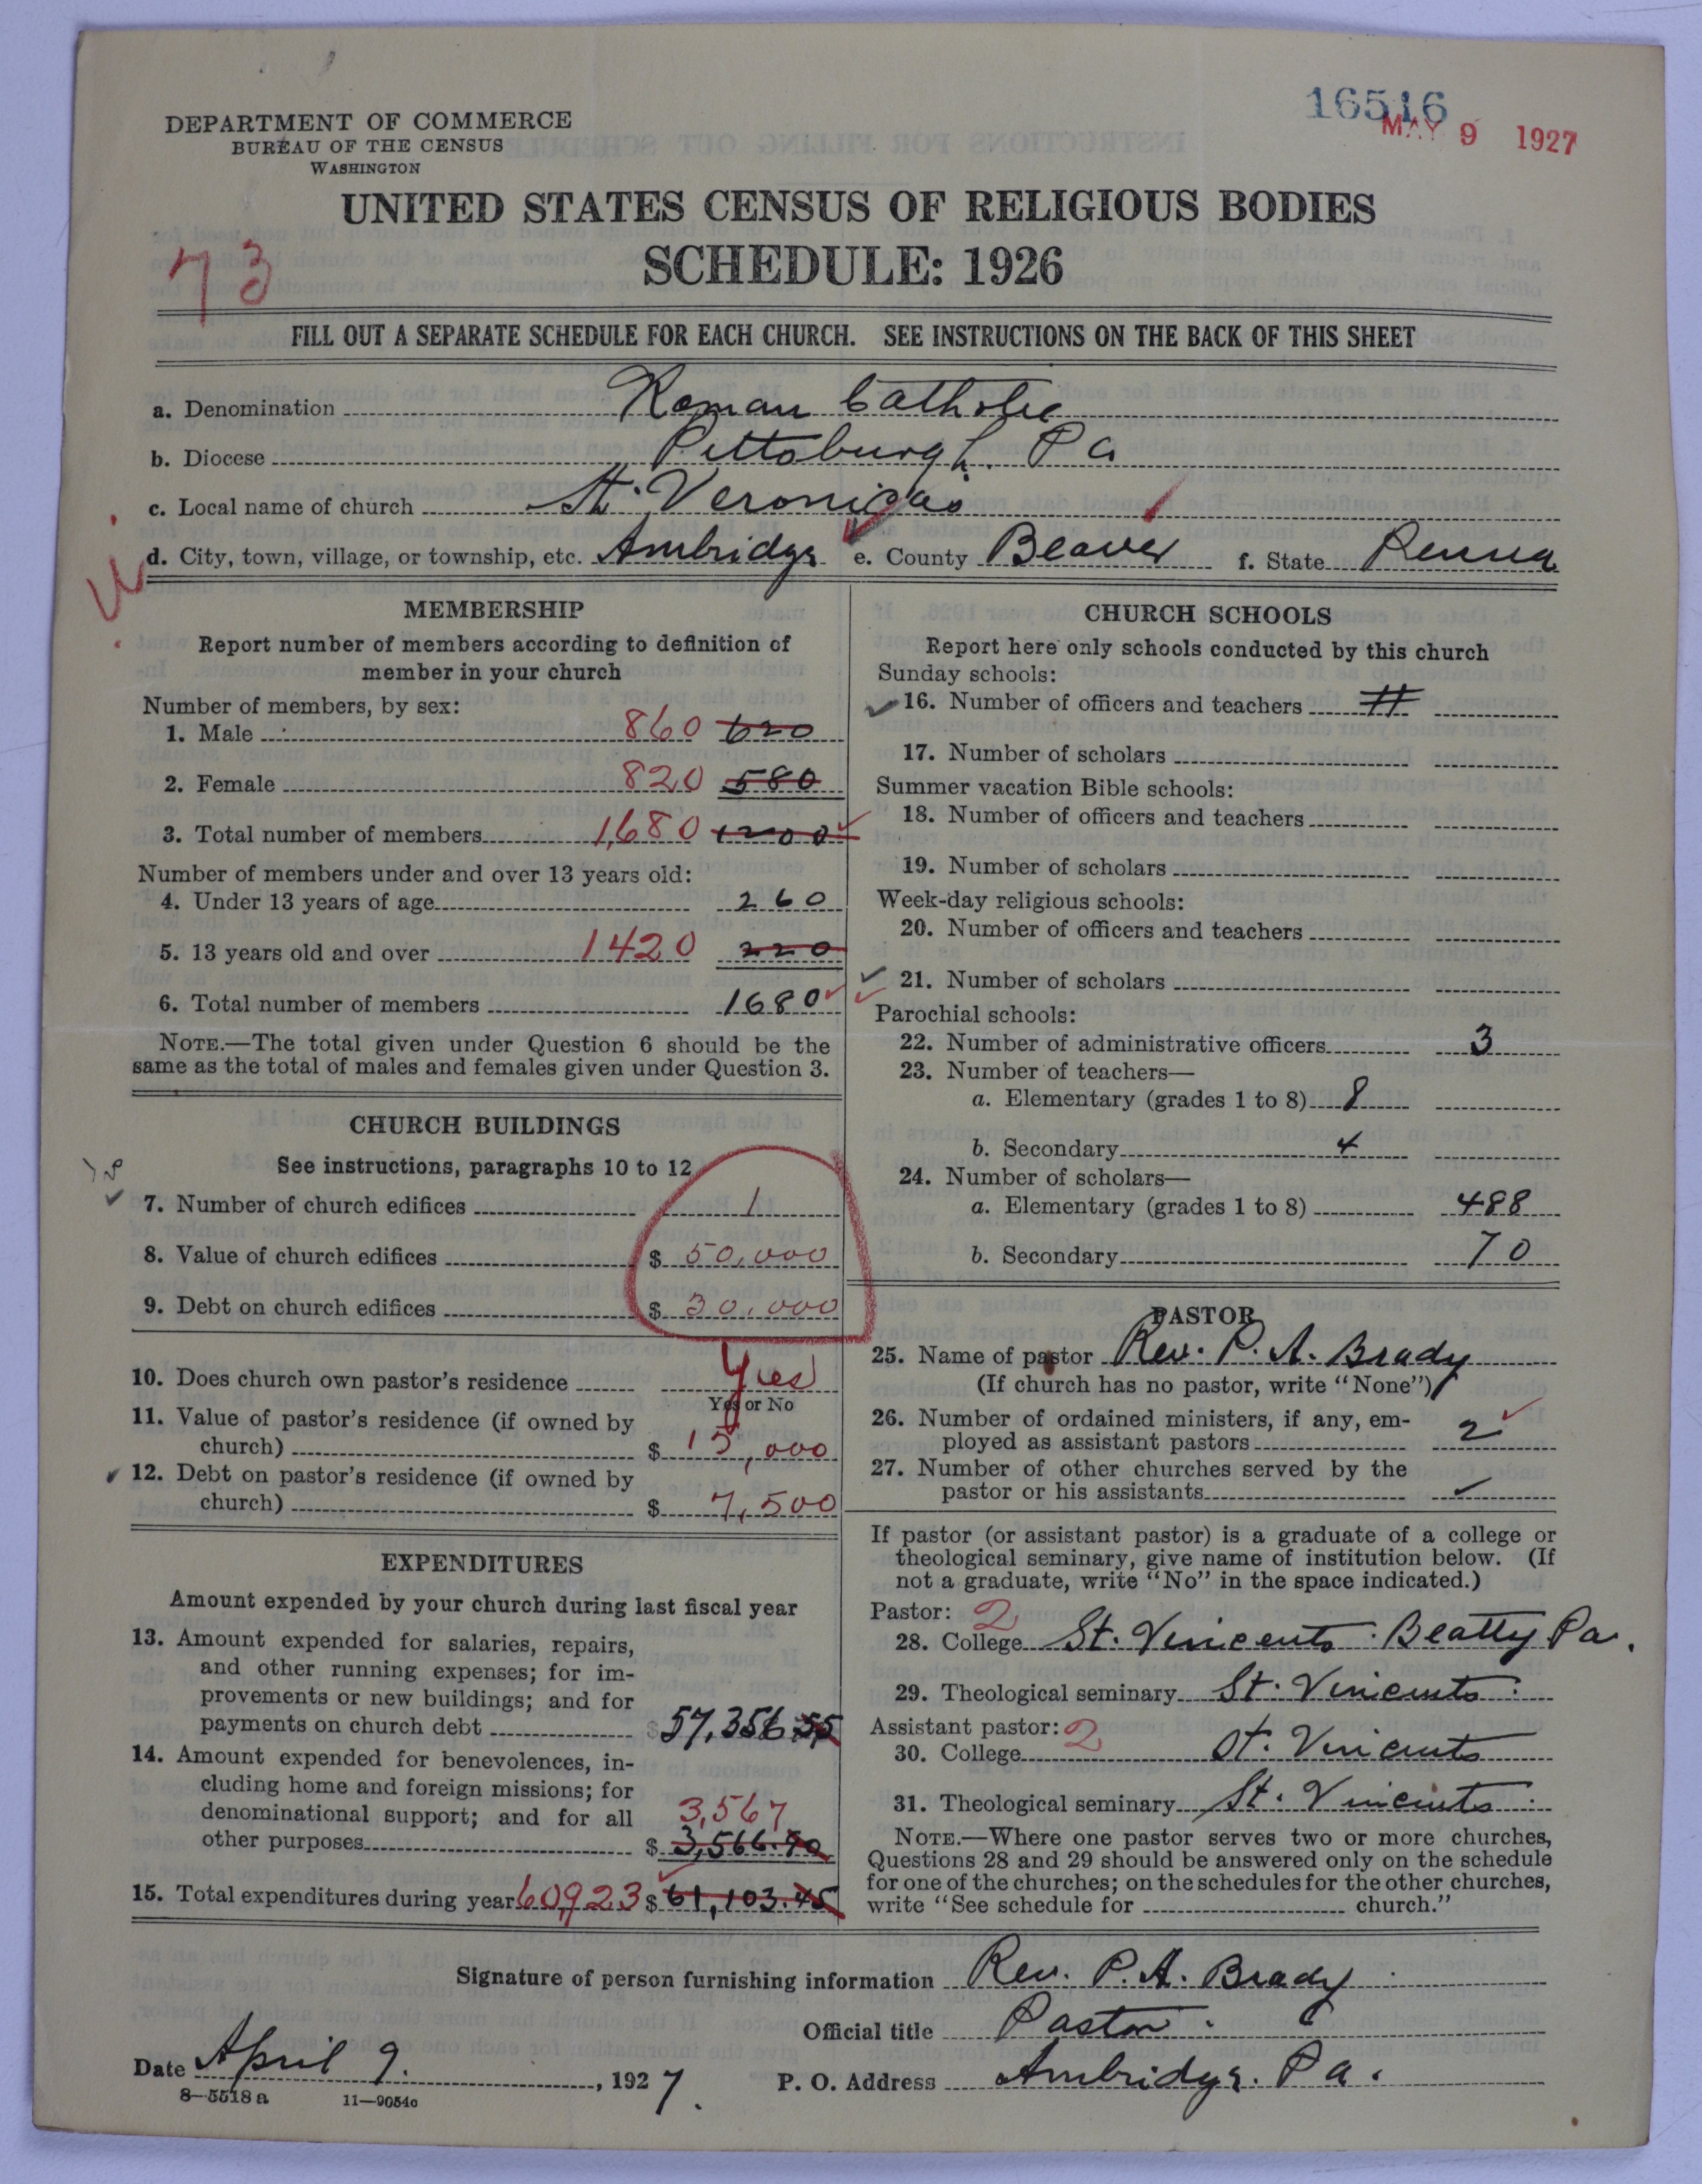 16516
MAY 9 1927
DEPARTMENT OF COMMERCE
BUREAU OF THE CENSUS
WASHINGTON
UNITED STATES CENSUS OF RELIGIOUS BODIES
SCHEDULE: 1926
73
FILL OUT A SEPARATE SCHEDULE FOR EACH CHURCH. SEE INSTRUCTIONS ON THE BACK OF THIS SHEET
a. Denomination Roman Catholic
b. Diocese Pittsburgh. Pa
c. Local name of church St. Veronica's
d. City, town, village, or township, etc. Ambridge e. County Beaver f. State Penna
MEMBERSHIP
Report number of members according to definition of
member in your church
Number of members, by sex:
1. Male 860 620
2. Female 820 580
3. Total number of members 1,680 1200
Number of members under and over 13 years old:
4. Under 13 years of age 260
5. 13 years old and over 1420 220
6. Total number of members 1680
NOTE.—The total given under Question 6 should be the
same as the total of males and females given under Question 3.
CHURCH BUILDINGS
See instructions, paragraphs 10 to 12
7. Number of church edifices 1
8. Value of church edifices $ 50,000
9. Debt on church edifices $ 30,000
10. Does church own pastor's residence Yes
Yes or No
11. Value of pastor's residence (if owned by
church) $ 15,000
12. Debt on pastor's residence (if owned by
church) $ 7,500
EXPENDITURES
Amount expended by your church during last fiscal year
13. Amount expended for salaries, repairs,
and other running expenses; for im-
provements or new buildings; and for
payments on church debt $ 57,356 55
14. Amount expended for benevolences, in-
cluding home and foreign missions; for
denominational support; and for all 3,567
other purposes $ 3,566.90
15. Total expenditures during year 60923 $ 61,103.45
CHURCH SCHOOLS
Report here only schools conducted by this church
Sunday schools:
16. Number of officers and teachers
17. Number of scholars
Summer vacation Bible schools:
18. Number of officers and teachers
19. Number of scholars
Week-day religious schools:
20. Number of officers and teachers
21. Number of scholars
Parochial schools:
22. Number of administrative officers 3
23. Number of teachers—
a. Elementary (grades 1 to 8) 8
b. Secondary 4
24. Number of scholars—
a. Elementary (grades 1 to 8) 488
b. Secondary 70
PASTOR
25. Name of pastor Rev. P. A. Brady
(If church has no pastor, write "None")
26. Number of ordained ministers, if any, em-
ployed as assistant pastors 2
27. Number of other churches served by the
pastor or his assistants
If pastor (or assistant pastor) is a graduate of a college or
theological seminary, give name of institution below. (If
not a graduate, write "No" in the space indicated.)
Pastor: 2
28. College St. Vincents. Beatty Pa.
29. Theological seminary St. Vincents.
Assistant pastor: 2
30. College St. Vincents
31. Theological seminary St. Vincents.
NOTE.—Where one pastor serves two or more churches,
Questions 28 and 29 should be answered only on the schedule
for one of the churches; on the schedules for the other churches,
write "See schedule for church."
Signature of person furnishing information Rev. P. A. Brady
Official title Pastor.
Date April 9. , 1927. P. O. Address Ambridge. Pa.
8—5518 a 11—9054c